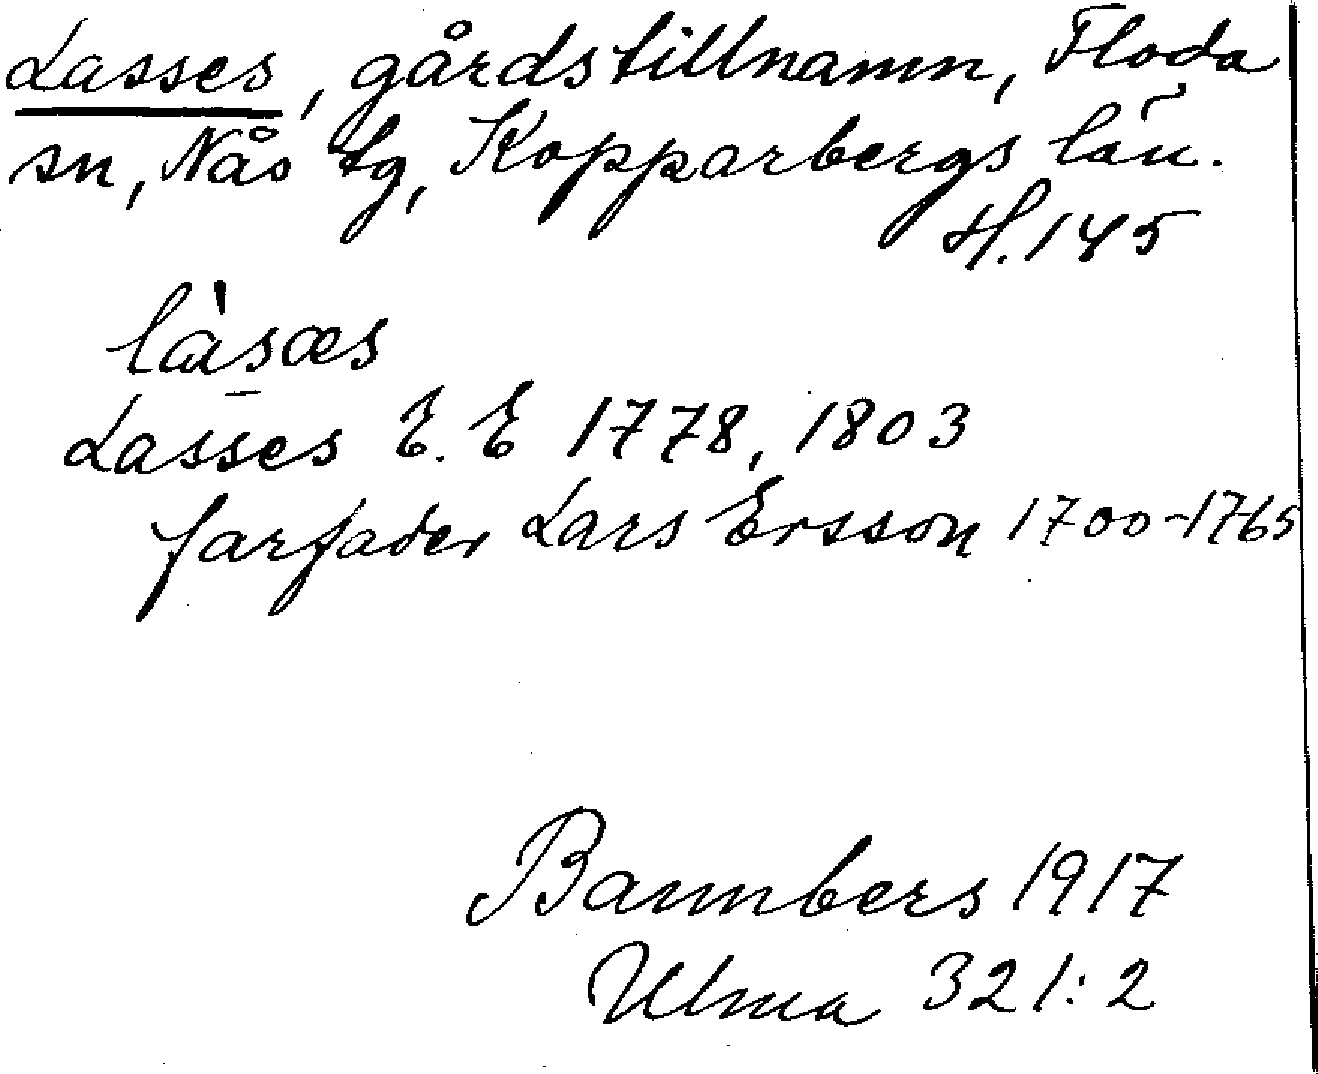 Lasses, gårdstillnamn, Floda
sn, Nås tg, Kopparbergs län.
H. 145
làsæs
Lasses E. E 1778, 1803
farfader Lars Ersson 1700-1765
Bannbers 1917
Ulma 321:2